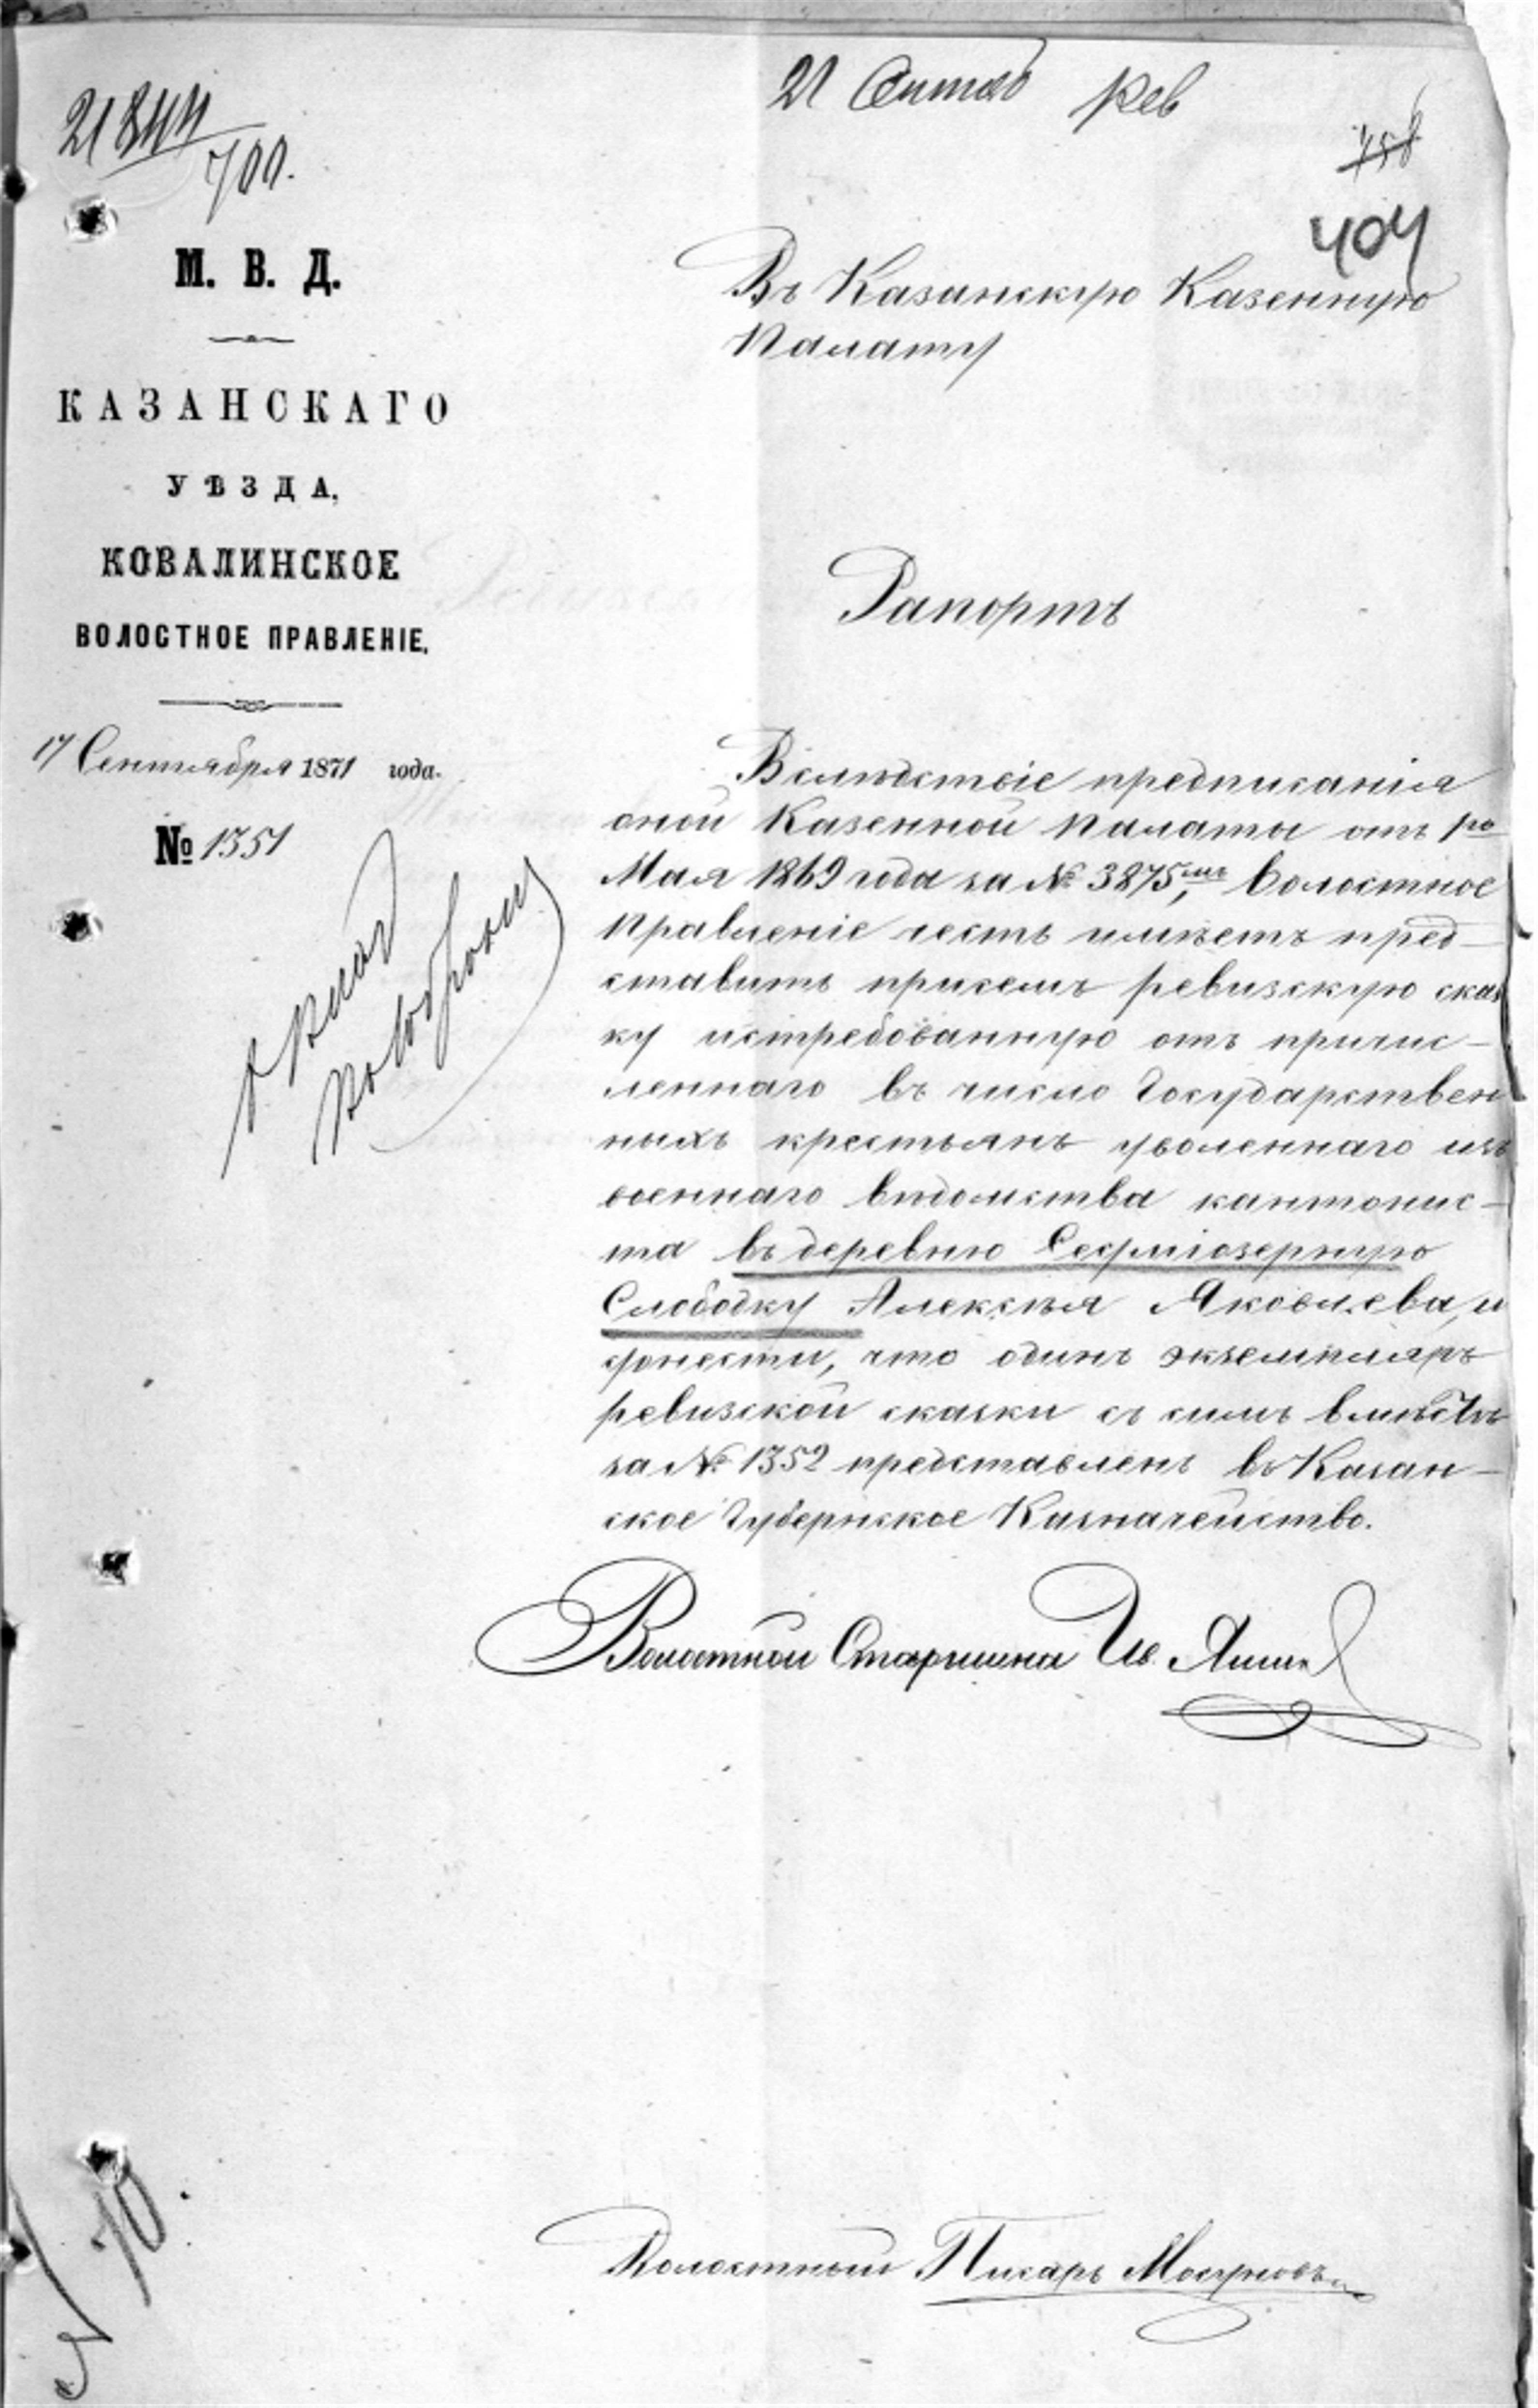 21844
700.
21 Сентяб рев
758
404
М. В. Д.
КАЗАНСКАГО
УѢЗДА,
КОВАЛИНСКОЕ
ВОЛОСТНОЕ ПРАВЛЕНІЕ.
17 Сентября 1871 года.
№ 1351
Въ Казанскую Казенную
Палату
Рапортъ
Вслѣдствіе предписанія
оной Казенной Палаты отъ 1го
Мая 1869 года за № 3875мъ, Волостное
Правленіе честь имѣетъ пред-
ставить присемъ ревизскую сказ
ку истребованную отъ причис-
леннаго въ число Государствен
ныхъ крестьянъ уволеннаго изъ
военнаго вѣдомства кантонис-
та въ деревню Седміозерную
Слободку Алексѣя Яковлева, и
донести, что одинъ экземпляръ
ревизской сказки съ симъ вмѣстѣ
за № 1352 представленъ въ Казан-
ское Губернское Казначейство.
Волостной Старшина Ив.
Волостный Писарь
70.